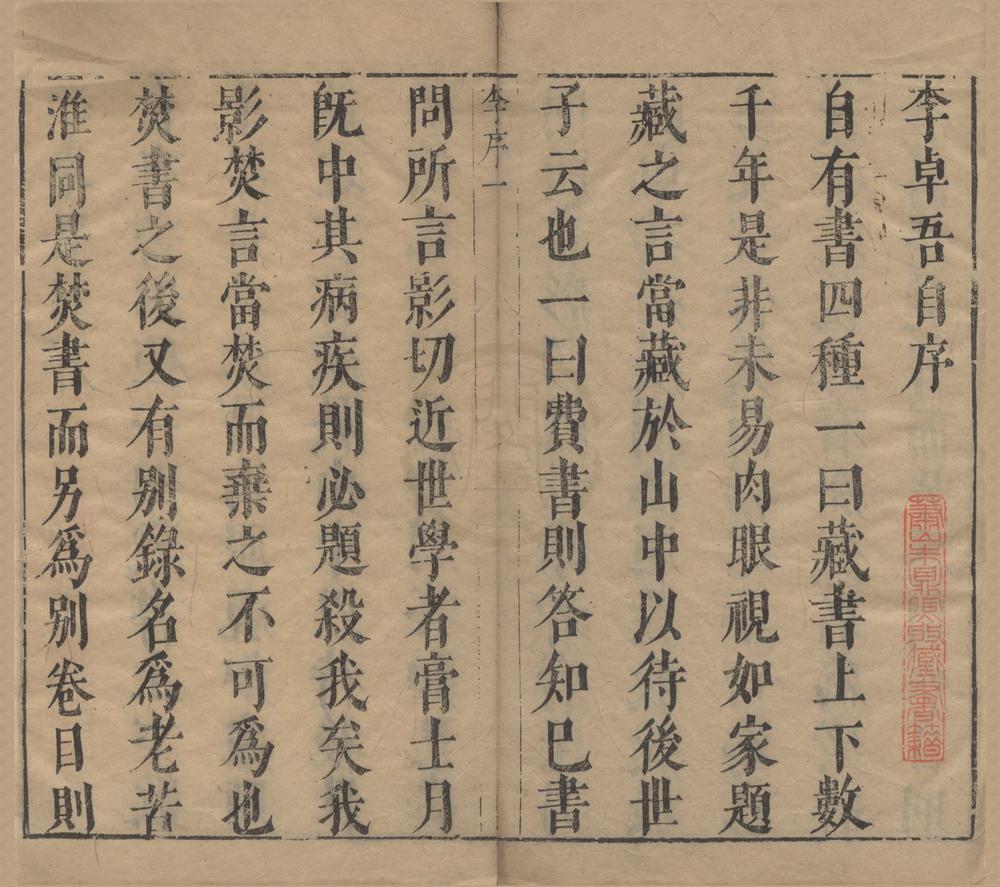 李卓吾自序
自有書四種一曰藏書上下數
千年是非未易肉眼視如家題
藏之言當藏於山中以待後世
子云也一曰費書則答知已書
李序一
問所言影切近世學者膏士月
旣中其病疾則必題殺我矣我
影焚言當焚而棄之不可爲也
焚書之後又有别錄名爲老苦
淮同是焚書而另爲别卷目則